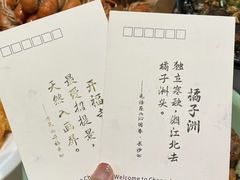 橘子洲
独立寒秋，湘江北去
橘子洲头。
——毛泽东《沁园春·长沙》
开福寺
最爱招提景，
天然入画屏。
Welcome to